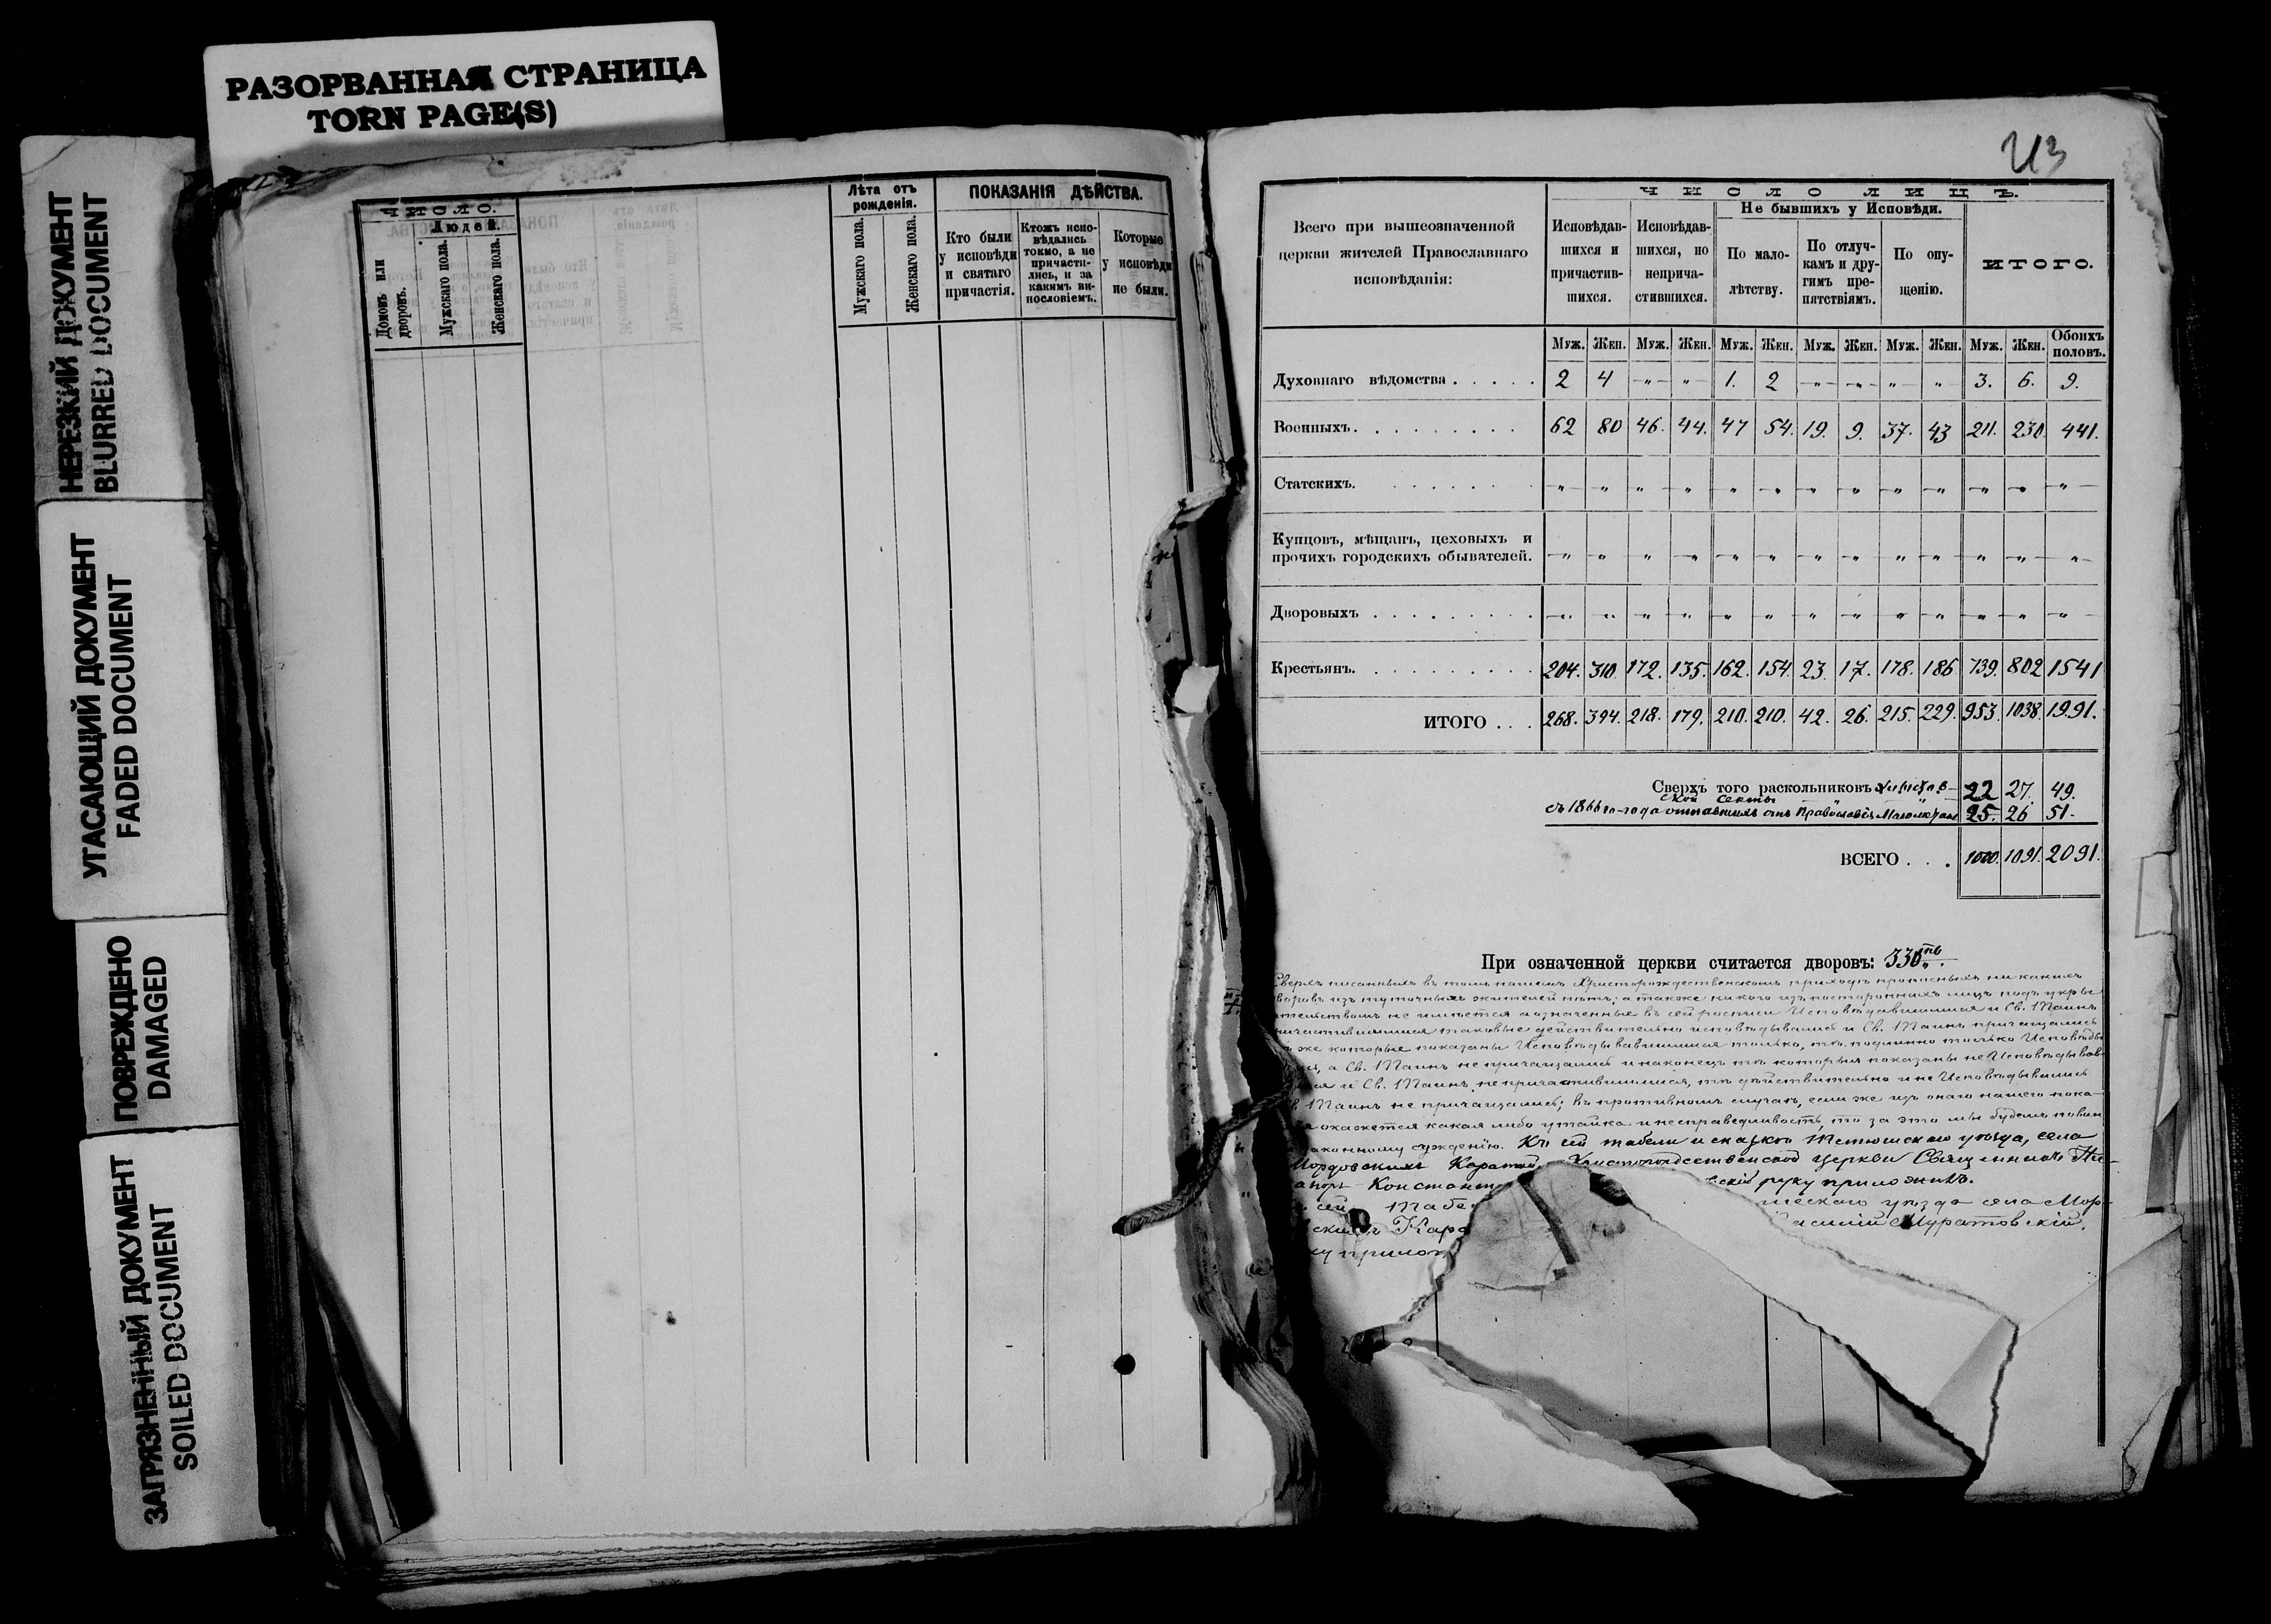 РАЗОРВАННАЯ СТРАНИЦА
TORN PAGE(S)
НЕРЕЗКИЙ ДОКУМЕНТ
BLURRED DOCUMENT
УГАСАЮЩИЙ ДОКУМЕНТ
FADED DOCUMENT
ПОВРЕЖДЕНО
DAMAGED
ЗАГРЯЗНЕННЫЙ ДОКУМЕНТ
SOILED DOCUMENT
ЧИСЛО.
Людей.
Домовъ или дворовъ.
Мужскаго пола.
Женскаго пола.
Лѣта отъ рожденія.
Мужскаго пола.
Женскаго пола.
ПОКАЗАНІЯ ДѢЙСТВА.
Кто были у исповѣди и святаго причастія.
Ктожъ исповѣдались токмо, а не причастились, и за какимъ винословіемъ.
Которые у исповѣди не были.
Всего при вышеозначенной церкви жителей Православнаго исповѣданія:
ЧИСЛО ЛИЦЪ.
Исповѣдавшихся и причастившихся.
Исповѣдавшихся, но непричастившихся.
Не бывшихъ у Исповѣди.
По малолѣтству.
По отлучкамъ и другимъ препятствіямъ.
По опущенію.
ИТОГО.
Муж. Жен. Муж. Жен. Муж. Жен. Муж. Жен. Муж. Жен. Муж. Жен. Обоихъ половъ.
Духовнаго вѣдомства . . . . . 2 4 „ „ 1. 2 „ „ „ „ 3. 6. 9.
Военныхъ. . . . . . . . . 62 80 46. 44. 47 54. 19. 9. 37. 43 211. 230. 441.
Статскихъ. . . . . . . . „ „ „ „ „ „ „ „ „ „ „ „ „
Купцовъ, мѣщанъ, цеховыхъ и
прочихъ городскихъ обывателей. „ „ „ „ „ „ „ „ „ „ „ „ „
Дворовыхъ . . . . . . . . . „ „ „ „ „ „ „ „ „ „ „ „ „
Крестьянъ. . . . . . . . . . 204. 310. 172. 135. 162. 154. 23. 17. 178. 186 739. 802 1541
ИТОГО . . . 268. 394. 218. 179. 210. 210. 42. 26. 215. 229. 953. 1038. 1991.
Сверхъ того раскольниковъ 22 27. 49.
ской секты
съ 1866 го года отпавшихъ отъ Православія 25. 26 51.
ВСЕГО . . . 1000. 1091. 2091.
При означенной церкви считается дворовъ: 330ть
Сверхъ писанныхъ въ томъ нашемъ Христорождественскомъ приходѣ прописныхъ никакихъ
воровъ изъ тутошныхъ жителей нѣтъ; а также никого изъ постороннихъ лицъ подъ укры
тельствомъ не имѣется а означенные въ сей росписи Исповѣдавшимися и Св. Таинъ
ричастившимися таковые действительно исповѣдывались и Св. Таинъ причащались
же которые показаны Исповѣдывавшимися только, тѣ подлинно только Исповѣды
а Св. Таинъ не причащались и наконецъ тѣ которые показаны не Исповѣдывав
и Св. Таинъ не причастившимися, тѣ дѣйствительно и не Исповѣдывались
Таинъ не причащались; въ противномъ случаѣ, если же изъ онаго нашего пока-
окажется какая либо утайка и несправедливость, то за это мы будемъ повин
законному сужденію. Къ сей табели и сказкѣ Тетюшскаго уѣзда, села
Мордовскихъ Каратай Христорождественской церкви Священникъ
Констант руку приложилъ.
сей Табе уѣзда села Мор-
скихъ Кара Муратовскій.
ку прилож